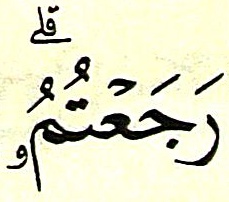 قلے
رَجَعۡتُمُۥ